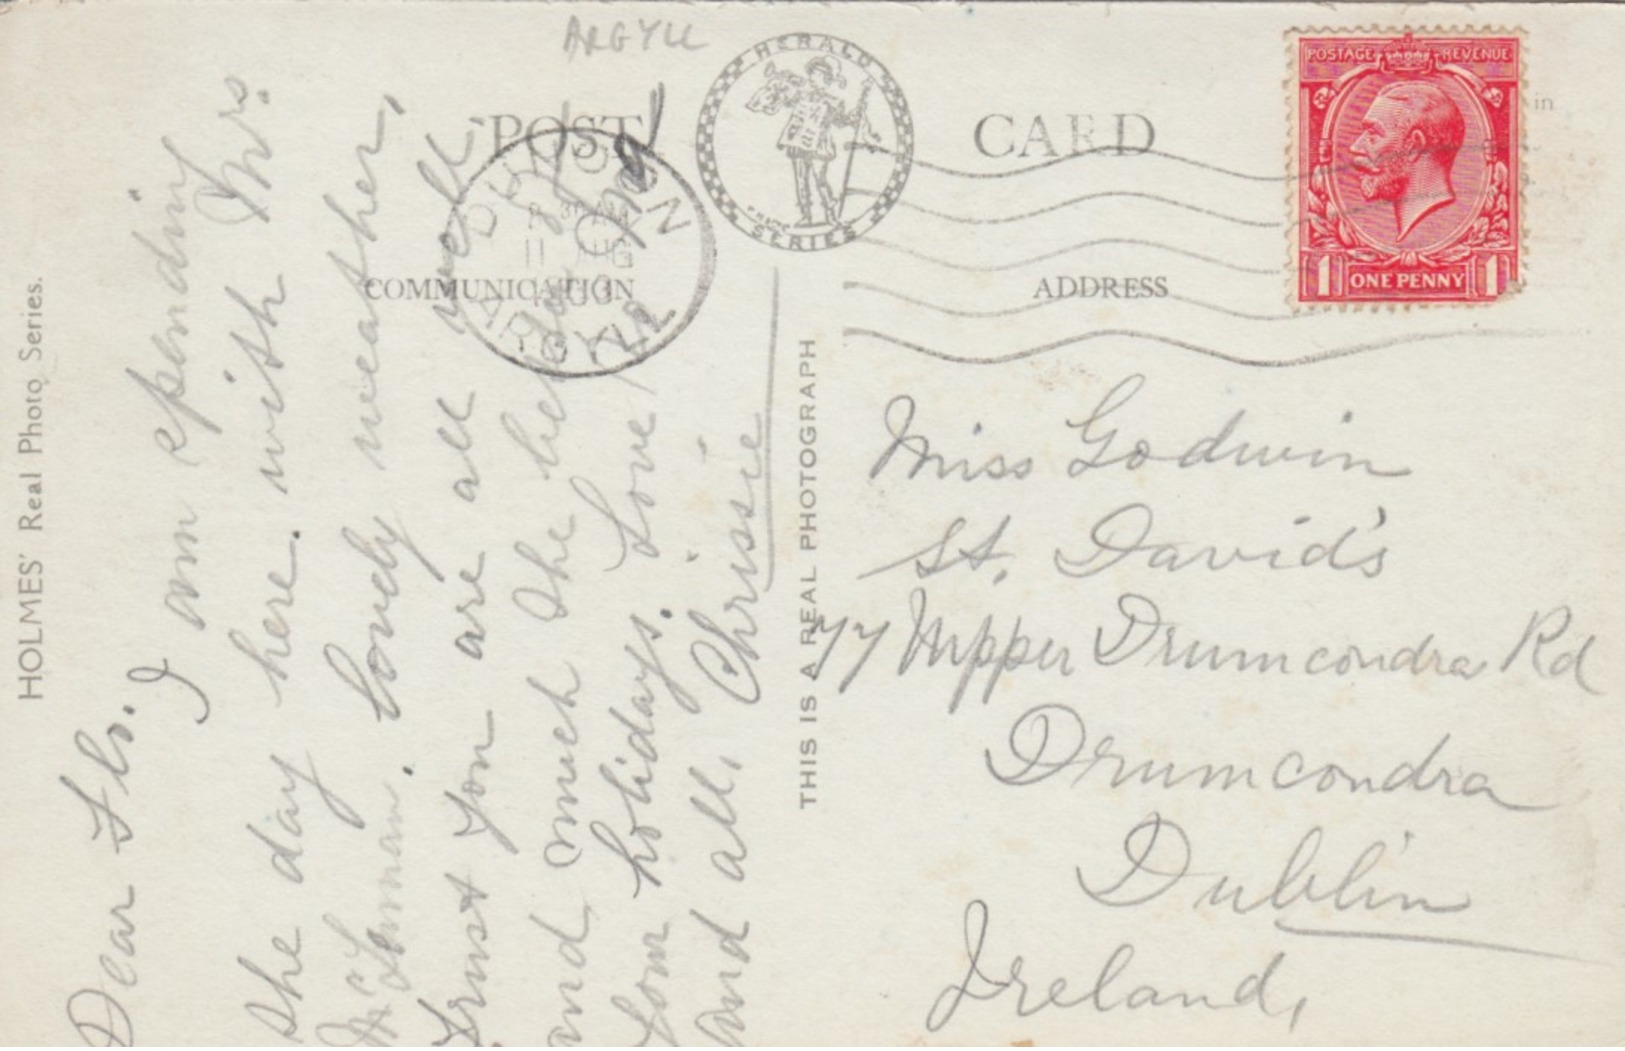 ARGYLL
POST CARD
HERALD
SERIES
POSTAGE REVENUE
1 ONE PENNY 1
in
COMMUNICATION
ADDRESS
DUNOON
11 AUG
ARGYLL
HOLMES' Real Photo Series.
THIS IS A REAL PHOTOGRAPH
Dear Flo.
I am spending
the day here with Mrs.
Lovely weather,
Trust you are all well
and much the better of
your holidays. Love
and all, Chrissie
Miss Godwin
St. David's
77 Upper Drumcondra Rd
Drumcondra
Dublin
Ireland,